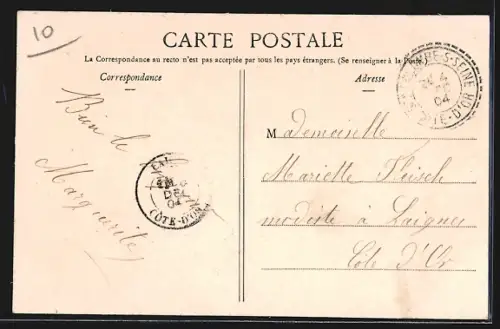 10
CARTE POSTALE
La Correspondance au recto n'est pas acceptée par tous les pays étrangers. (Se renseigner à la Poste.)
Correspondance
Adresse
S-SEINE
4
04
CÔTE-D'OR
Mademoiselle
Mariette Fleisch
modiste à Laignes
Côte d'Or
Marguerite
DEC
04
CÔTE-D'OR